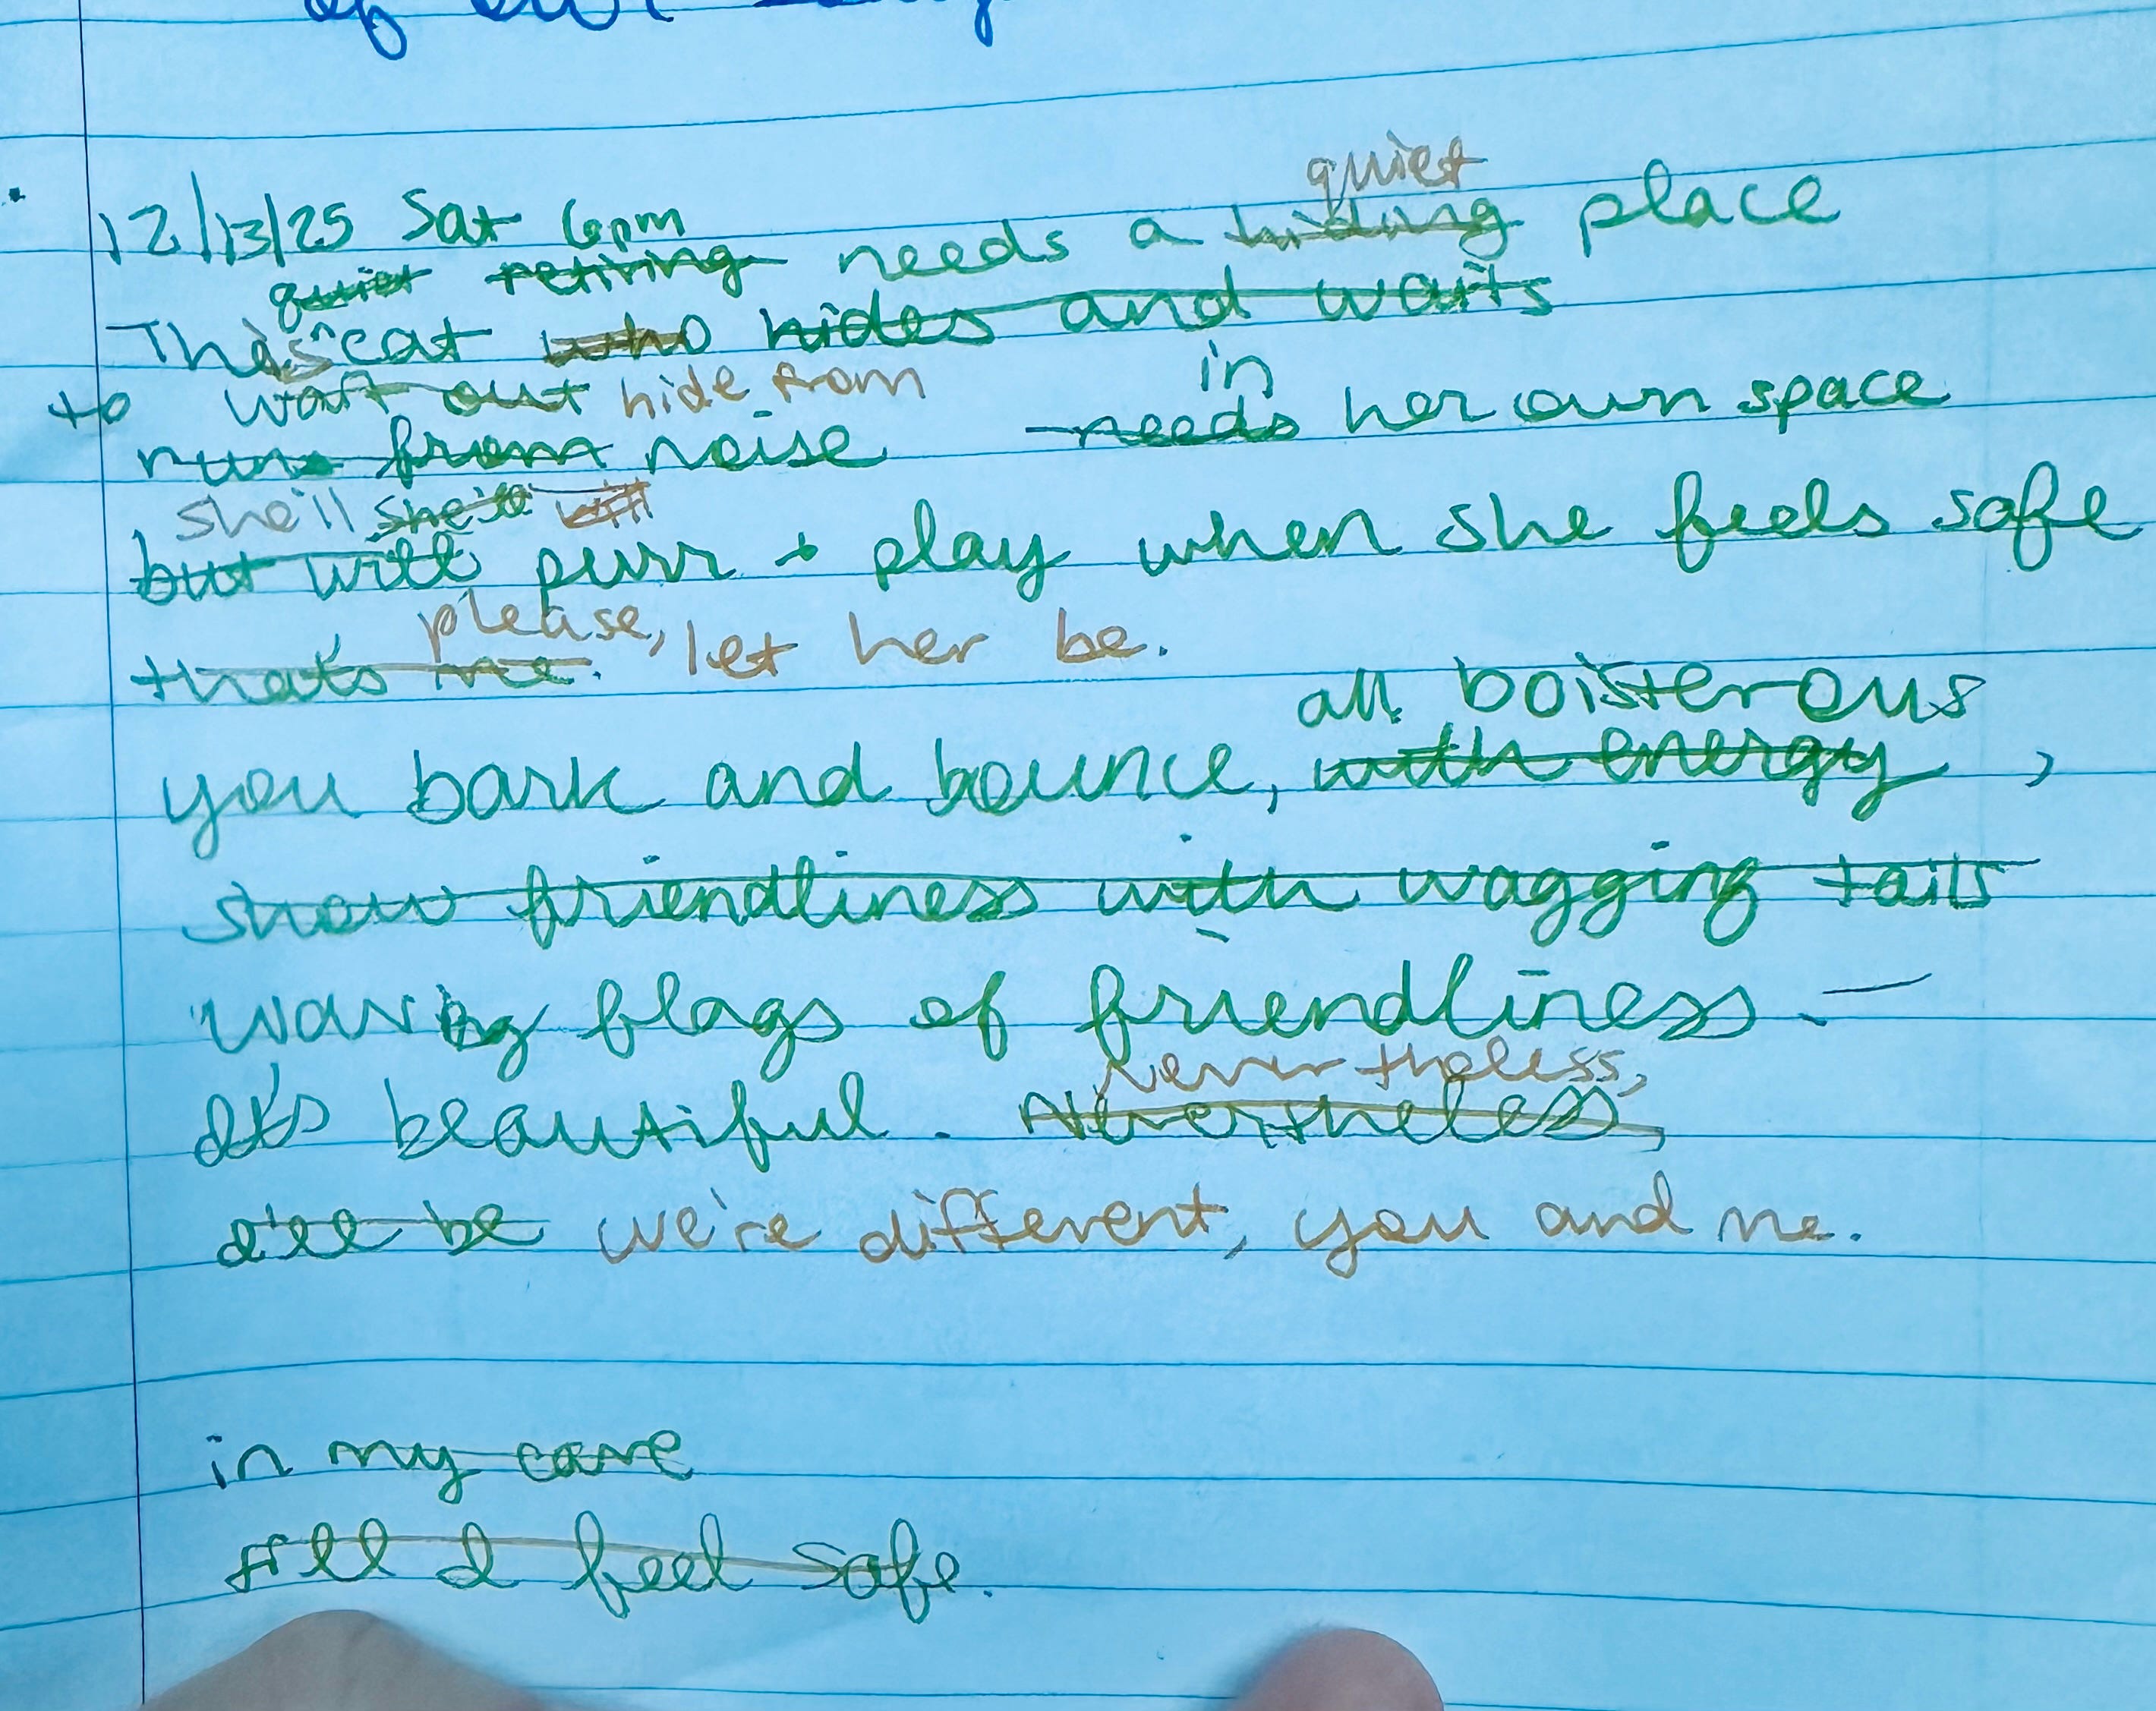 of our
12/13/25 Sat 6pm
quiet
quiet retiring needs a hiding place
This cat who hides and waits
to wait out hide from in
runs from noise needs her own space
she'll she'll will
but will purr + play when she feels safe
please, let her be.
that's me.
all boisterous
you bark and bounce, with energy,
show friendliness with wagging tails
waving flags of friendliness -
nevertheless,
It's beautiful. Nevertheless,
I'll be we're different, you and me.
in my care
till I feel safe.